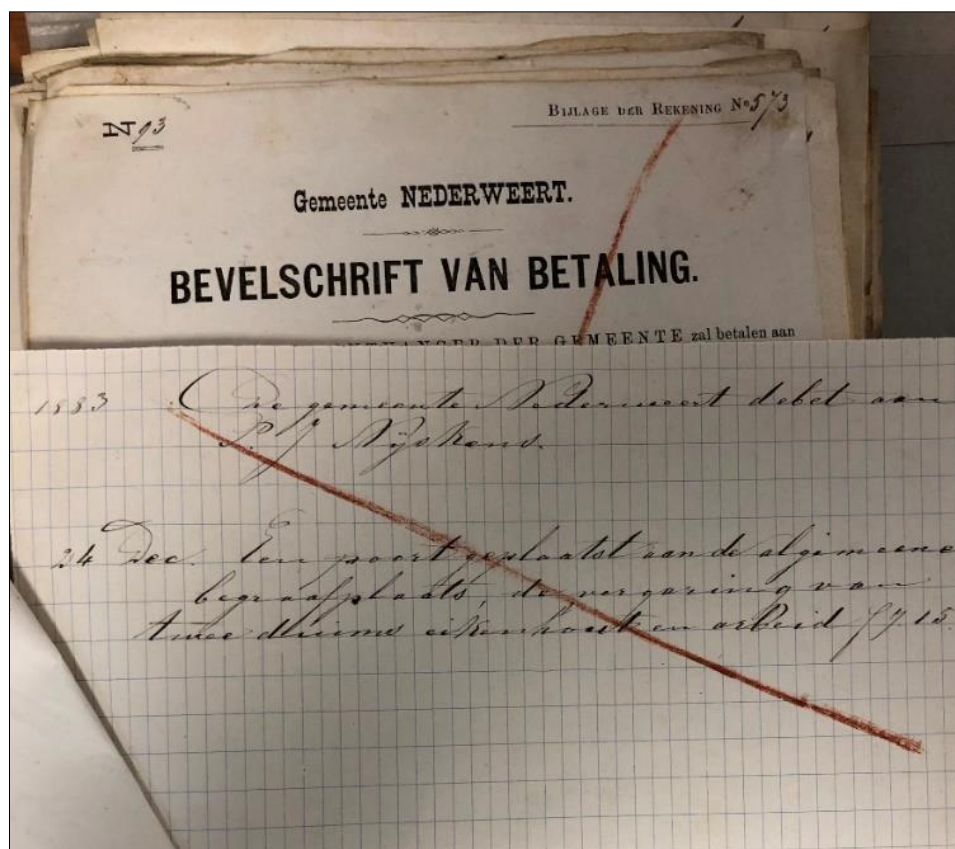 N 93
BIJLAGE DER REKENING No 573
Gemeente NEDERWEERT.
BEVELSCHRIFT VAN BETALING.
ONTVANGER DER GEMEENTE zal betalen aan
1883 De gemeente Nederweert debet aan
P. J Nijskens.
24 Dec. Een poort geplaatst aan de algemeene
begraafplaats, de vergaring van
twee duims eikenhout en arbeid f 7 15